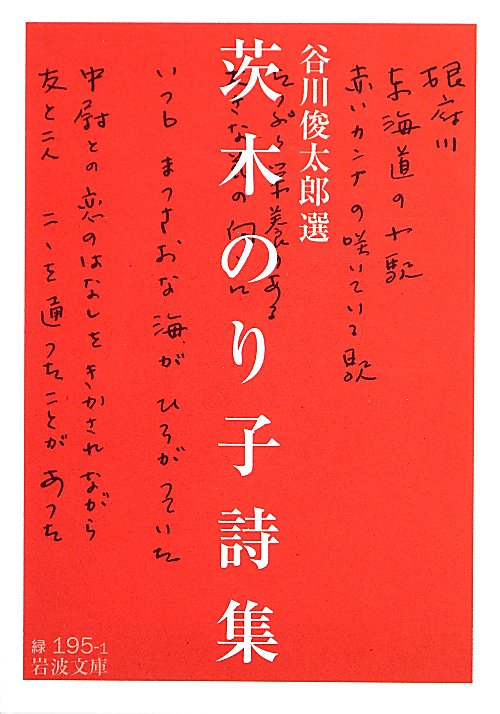 谷川俊太郎選
茨木のり子詩集
根府川
東海道の小駅
赤いカンナの咲いている駅
たっぷり栄養のある
大きな花の向うに
いつも まっさおな海がひろがっていた
中尉との恋のはなしをきかされながら
友と二人 ここを通ったことがあった
緑 195-1
岩波文庫